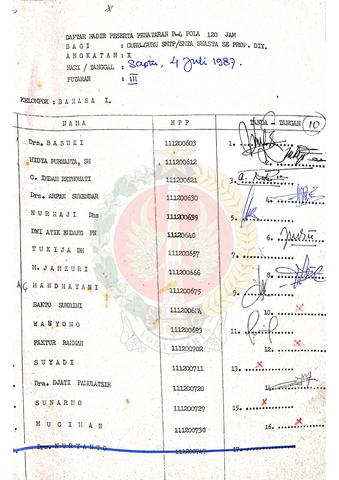 DAFTAR HADIR PESERTA PENATARAN P-4 POLA 120 JAM
BAGI : GURU-GURU SMTP/SMTA SWASTA SE PROP. DIY.
ANGKATAN : X
HARI / TANGGAL : Sabtu, 4 Juli 1987.
PUTARAN : III
KELOMPOK : BAHASA I.
NAMA NPP TANDA - TANGAN 10
Drs. BASUKI 111200603 1.
WIDYA PURNAMTA, SH 111200612
C. ENDAH RETNOWATI 111200621 3.
Drs. ARFAN SUKENDAR 111200630 4.
NURHAJI Dhs 111200639 5.
DWI ATIK ENDANG PN 111200640 6.
TUKIJA DH 111200657 7.
M. JAHZURI 111200666 8.
HANDHAYANI 111200675 9.
BAKTO SUKRIDI 111200684 10. X
WANYONO 111200693 11.
FAKTUR RAHMAN 111200702 12. X
SUYADI 111200711 13. X
Dra. DJATI PAMULATSIH 111200720 14.
SUNARNO 111200729 15. X
MUGIHAN 111200738 16. X
Drs. NURYANTO 111200747 17.